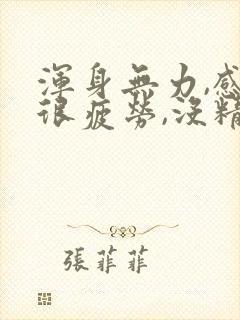 渾身無力,感
很疲勞,沒精
張菲菲